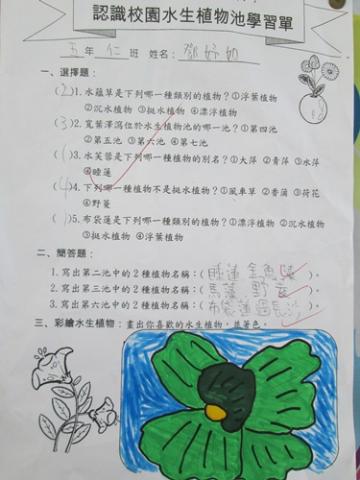 認識校園水生植物池學習單
五年 仁班 姓名：鄧妤如
一、選擇題：
(2)1.水蘊草是下列哪一種類別的植物？①浮葉植物
②沉水植物 ③挺水植物 ④漂浮植物
(3)2.寬葉澤瀉位於水生植物池的哪一池？①第四池
②第五池 ③第六池 ④第七池
(1)3.水芙蓉是下列哪一種植物的別名？①大萍 ②青萍 ③水萍
④睡蓮
(4)4.下列哪一種植物不是挺水植物？①風車草 ②香蒲 ③荷花
④野薑
(1)5.布袋蓮是下列哪一種類別的植物？①漂浮植物 ②沉水植物
③挺水植物 ④浮葉植物
二、簡答題：
1.寫出第二池中的2種植物名稱：(睡蓮 金魚藻)。
2.寫出第三池中的2種植物名稱：(馬藻 野薑)。
3.寫出第六池中的2種植物名稱：(布袋蓮 過長沙)。
三、彩繪水生植物：畫出你喜歡的水生植物，並著色。